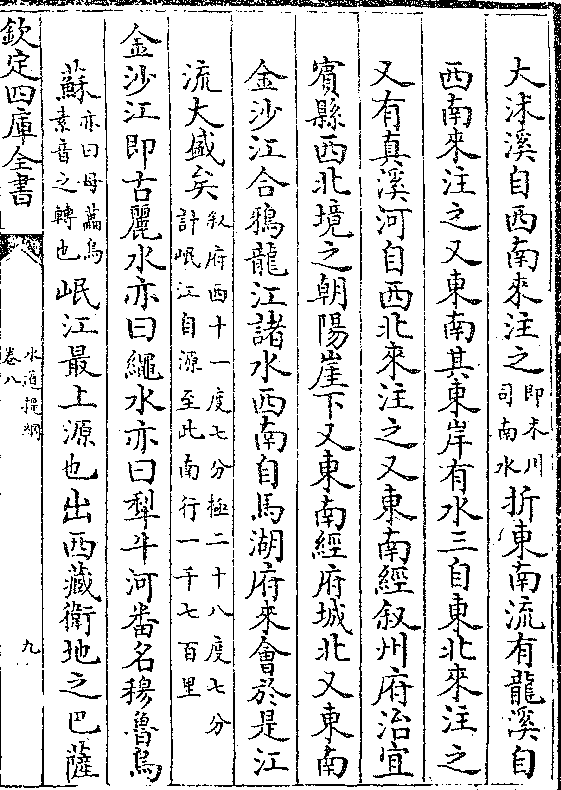 大沬溪自西南來注之即沐川司南水折東南流有龍溪自
西南來注之又東南其東岸有水三自東北來注之
又有真溪河自西北來注之又東南經叙州府治宜
賓縣西北境之朝陽崖下又東南經府城北又東南
金沙江合鴉龍江諸水西南自馬湖府來會於是江
流大盛矣叙府西十一度七分極二十八度七分計岷江自源至此南行一千七百里
金沙江即古麗水亦曰繩水亦曰犁牛河番名穆魯烏
蘇亦曰母薑烏素音之轉也岷江最上源也出西藏衛地之巴薩
欽定四庫全書
水道提綱
卷八
九